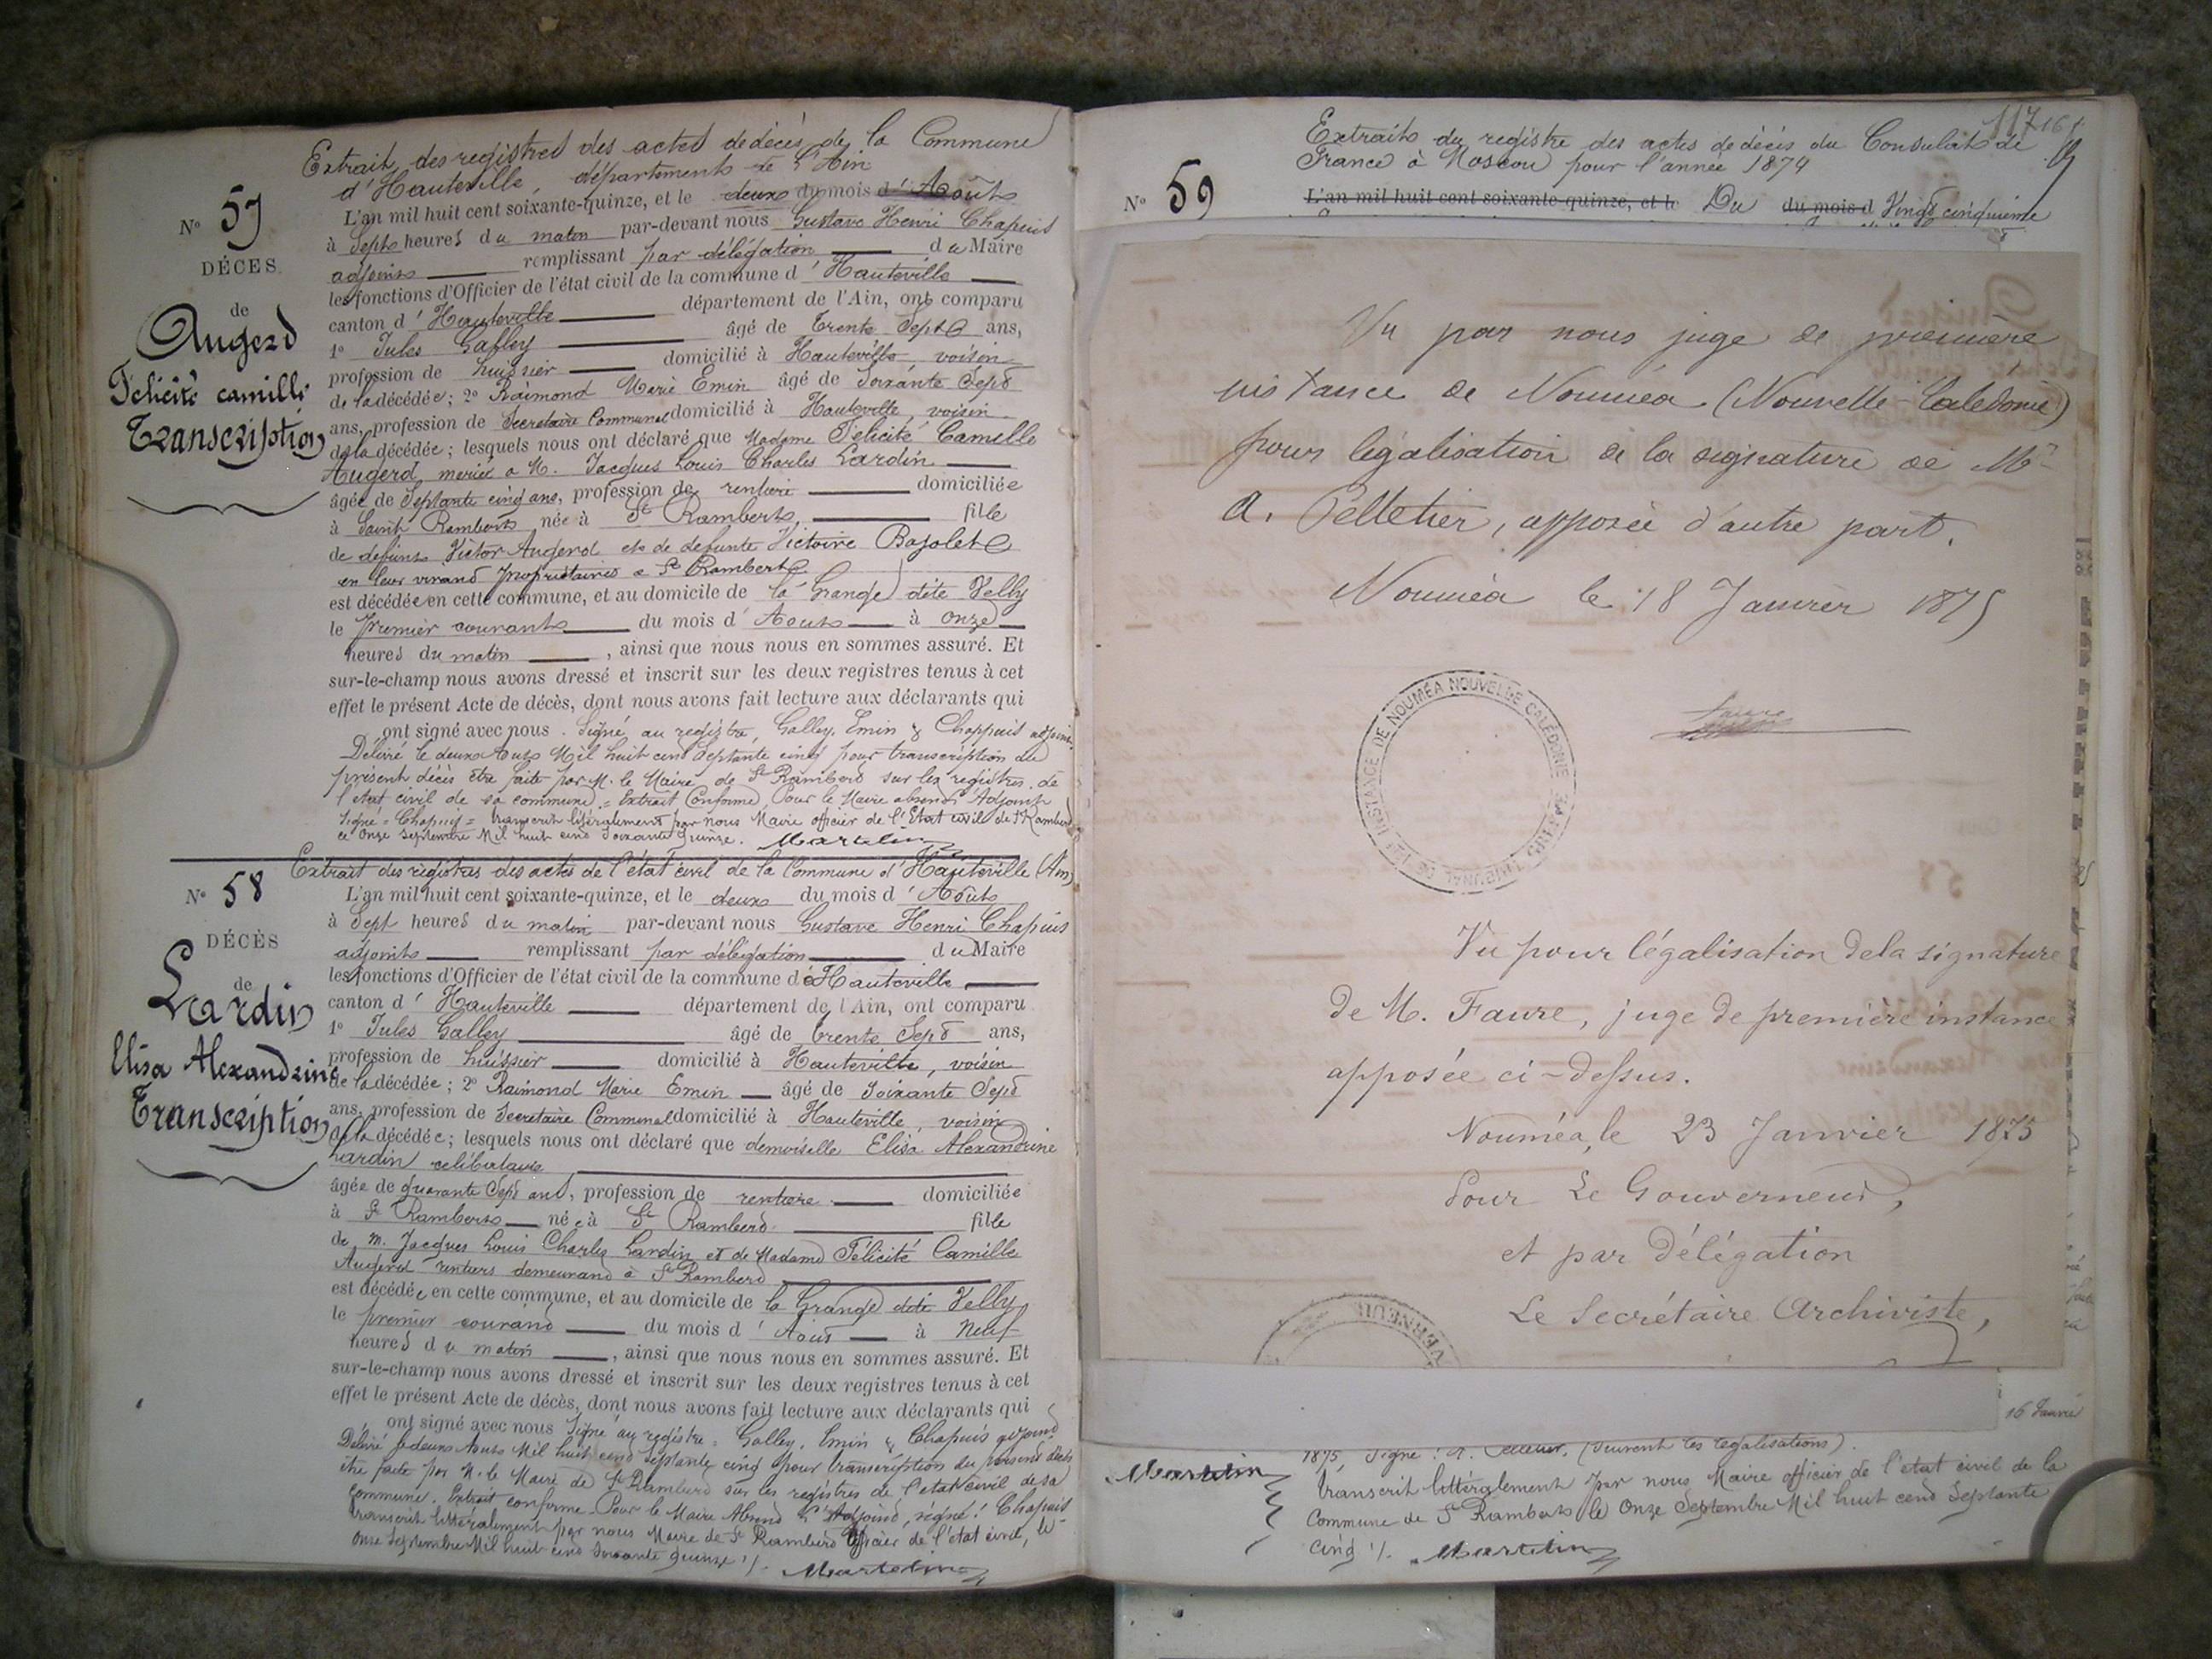 Extrait des registres des actes de décès de la Commune
d'Hauteville, département de l'Ain
N° 57
DÉCES
de
Augerd
Félicité camille
Transcription
L'an mil huit cent soixante-quinze, et le deux du mois d'Août
à Sept heures du matin par-devant nous Gustave Henri Chapuis
adjoint remplissant par délégation du Maire
les fonctions d'Officier de l'état civil de la commune d'Hauteville
canton d'Hauteville département de l'Ain, ont comparu
1° Jules Galley âgé de trente Sept ans,
profession de huissier domicilié à Hauteville voisin
de la décédée; 2° Raimond Marie Emin âgé de Soixante Sept
ans, profession de Secrétaire Communal domicilié à Hauteville, voisin
de la décédée; lesquels nous ont déclaré que Madame Félicité Camille
Augerd, mariée a M. Jacques Louis Charles Lardin
âgée de Septante cinq ans, profession de rentière domiciliée
à Saint Rambert, née à St Rambert, fille
de defunt Victor Augerd et de defunte Victoire
en leur vivand propriétaires a St Rambert
est décédée en cette commune, et au domicile de la Grange dite Velly
le premier courant du mois d'Aout à onze
heures du matin, ainsi que nous nous en sommes assuré. Et
sur-le-champ nous avons dressé et inscrit sur les deux registres tenus à cet
effet le présent Acte de décès, dont nous avons fait lecture aux déclarants qui
ont signé avec nous. Signé au registre, Galley, Emin & Chappuis adjoint.
Délivré le deux Aout Mil huit cend Septante cinq pour transcription du
présent décès etre faite par M. le Maire de St Ramberd sur les registres de
l'état civil de sa commune = Extrait Conforme, Pour le Maire absend l'Adjoint
Signé = Chapuis = transcrit litéralement par nous Maire officier de l'Etat civil de St Ramberd
ce onze septembre Mil huit cend Soixante quinze. Martelin
Extrait des registres des actes de l'état civil de la Commune d'Hauteville (Ain)
N° 58
DÉCÈS
de
Lardin
Elisa Alexandrine
Transcription
L'an mil huit cent soixante-quinze, et le deux du mois d'Août
à Sept heures du matin par-devant nous Gustave Henri Chapuis
adjoint remplissant par délégation du Maire
les fonctions d'Officier de l'état civil de la commune d'Hauteville
canton d'Hauteville département de l'Ain, ont comparu
1° Jules Galley âgé de trente Sept ans,
profession de huissier domicilié à Hauteville, voisin
de la décédée; 2° Raimond Marie Emin âgé de Soixante Sept
ans, profession de Secrétaire Communal domicilié à Hauteville, voisin
de la décédée; lesquels nous ont déclaré que demoiselle Elisa Alexandrine
Lardin célibataire
âgée de quarante Sept ans, profession de rentière domiciliée
à St Rambert née à St Ramberd fille
de M. Jacques Louis Charles Lardin et de Madame Félicité Camille
Augerd rentiers demeurand à St Ramberd
est décédée en cette commune, et au domicile de la Grange dite Velly
le premier courand du mois d'Aout à Neuf
heures du matin, ainsi que nous nous en sommes assuré. Et
sur-le-champ nous avons dressé et inscrit sur les deux registres tenus à cet
effet le présent Acte de décès, dont nous avons fait lecture aux déclarants qui
ont signé avec nous Signé au registre = Galley, Emin & Chapuis adjoind
Délivré le deux Aout Mil huit cend Septante cinq pour transcription du présend décès
etre faite par M. le Maire de St Ramberd sur les registres de l'etat civil de sa
commune. Extrait conforme. Pour le Maire Absend l'Adjoind, signé: Chapuis
transcrit littéralement par nous Maire de St Ramberd officier de l'état civil, le
onze Septembre Mil huit cend Soixante quinze ./. Martelin
117
Extrait du registre des actes de décès du Consulat de
France à Moscou pour l'année 1874
N° 59
L'an mil huit cent soixante-quinze, et le Du du mois d Vingt cinquième
Vu par nous juge de première
instance de Nouméa (Nouvelle-Calédonie)
pour légalisation de la signature de Mr
A. Pelletier, apposée d'autre part.
Nouméa le 18 Janvier 1875
TRIBUNAL DE 1ERE INSTANCE DE NOUMÉA NOUVELLE CALÉDONIE
Faure
Vu pour légalisation de la signature
de M. Faure, juge de première instance
apposée ci-dessus.
Nouméa, le 23 Janvier 1875
Pour Le Gouverneur,
et par Délégation
Le Secrétaire Archiviste,
16 Janvier
1875, Signé: A. Pelletier. (Suivent les légalisations).
Martelin
transcrit littéralement par nous Maire officier de l'etat civil de la
Commune de St Rambert le Onze Septembre Mil huit cend Septante
Cinq ./. Martelin